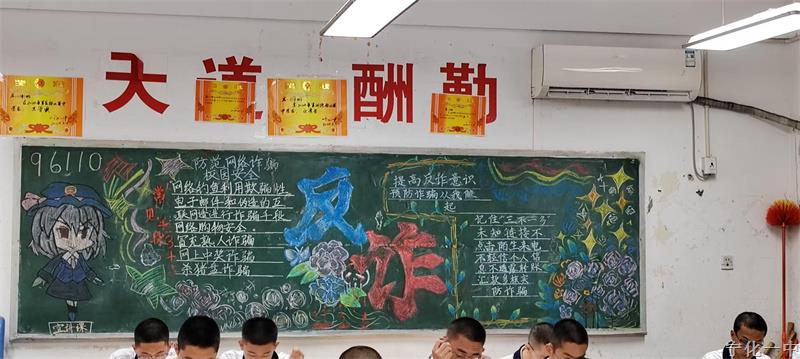 天道酬勤
96110
防范网络诈骗
校园安全
常见诈骗
网络钓鱼利用欺骗性
电子邮件和伪造的互
联网站进行诈骗手段
网络购物安全。
冒充熟人诈骗
网上中奖诈骗
杀猪盘诈骗
反
诈
提高反诈意识
预防诈骗从我做
起
记住"三不一多"
未知链接不
点击陌生来电
不轻信个人信
息不透露转账
汇款多核实
防诈骗
宣讲课
宁化一中